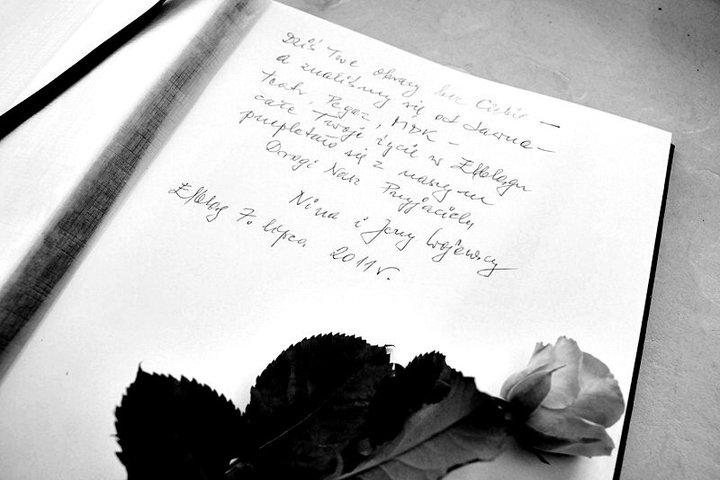 Dziś Twe obrazy bez Ciebie —
a znaliśmy się od dawna —
teatr, Pegaz, MDK —
całe Twoje życie w Elblągu
przeplatało się z naszym
Drogi Nasz Przyjacielu
Nina i Jerzy Wojewscy
Elbląg 7. lipca 2011 r.